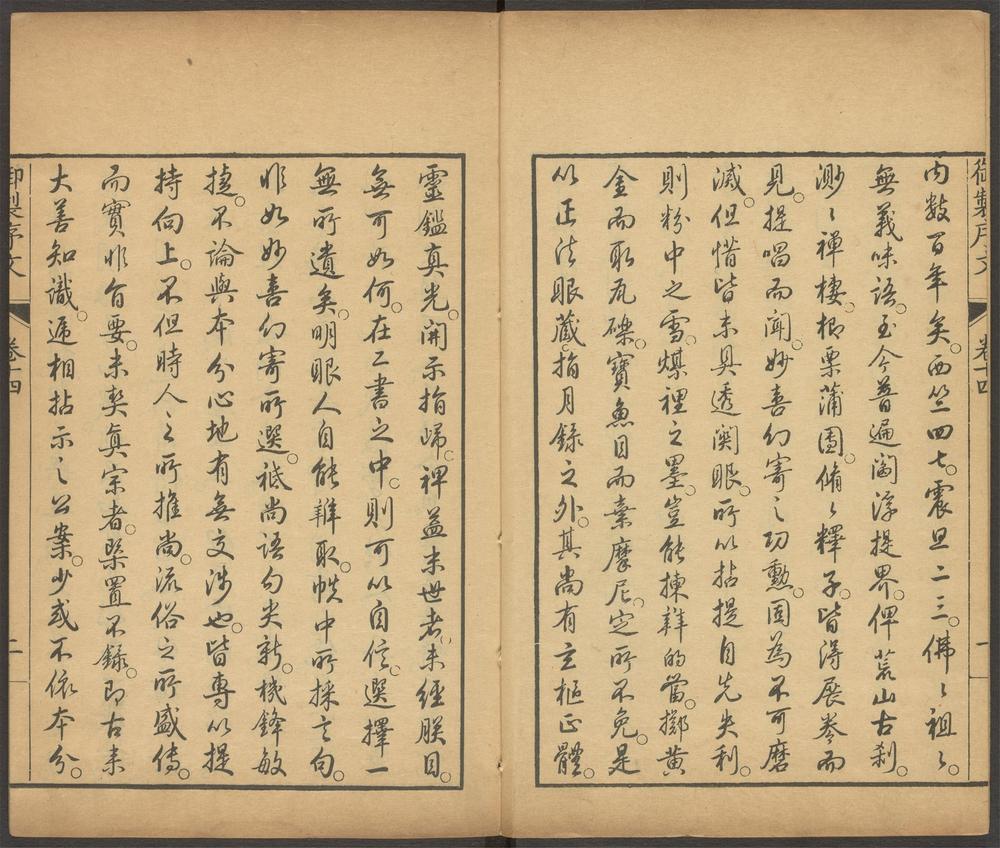 御製序文 卷十四 一
内數百年矣。西竺四七。震旦二三。佛〻祖〻。
無義味語。至今普遍閻浮提界。俾荒山古刹。
渺〻禪棲。榔栗蒲團。翛〻釋子。皆得展卷而
見。提唱而聞。妙喜幻寄之功勲。固為不可磨
滅。但惜皆未具透関眼。所以拈提自先失利。
則粉中之雪。煤裡之墨。豈能揀辨的當。擲黄
金而取瓦礫。寶魚目而棄摩尼。定所不免。是
以正法眼藏。指月錄之外。其尚有立樞正體。
靈鑑真光。開示指歸。裨益末世者。未經朕目。
無可如何。在二書之中。則可以自信。選擇一
無所遺矣。明眼人自能辨取。帙中所採言句。
非如妙喜幻寄所選。祗尚語句尖新。機鋒敏
捷。不論與本分心地有無交涉也。皆專以提
持向上。不但時人之所推尚。流俗之所盛傳。
而實非旨要。未契真宗者。槩置不錄。即古来
大善知識。遞相拈示之公案。少或不依本分。
御製序文 卷十四 二